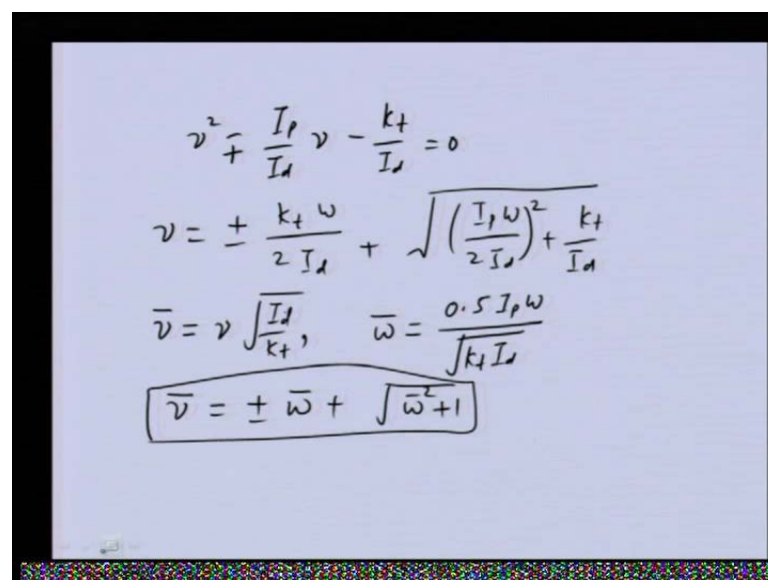 ν² ∓ I_p/I_d ν − k_t/I_d = 0
ν = ± k_t ω/2 I_d + √((I_p ω/2 I_d)² + k_t/I_d)
ν̅ = ν √(I_d/k_t), ω̅ = 0.5 I_p ω/√(k_t I_d)
ν̅ = ± ω̅ + √(ω̅² + 1)